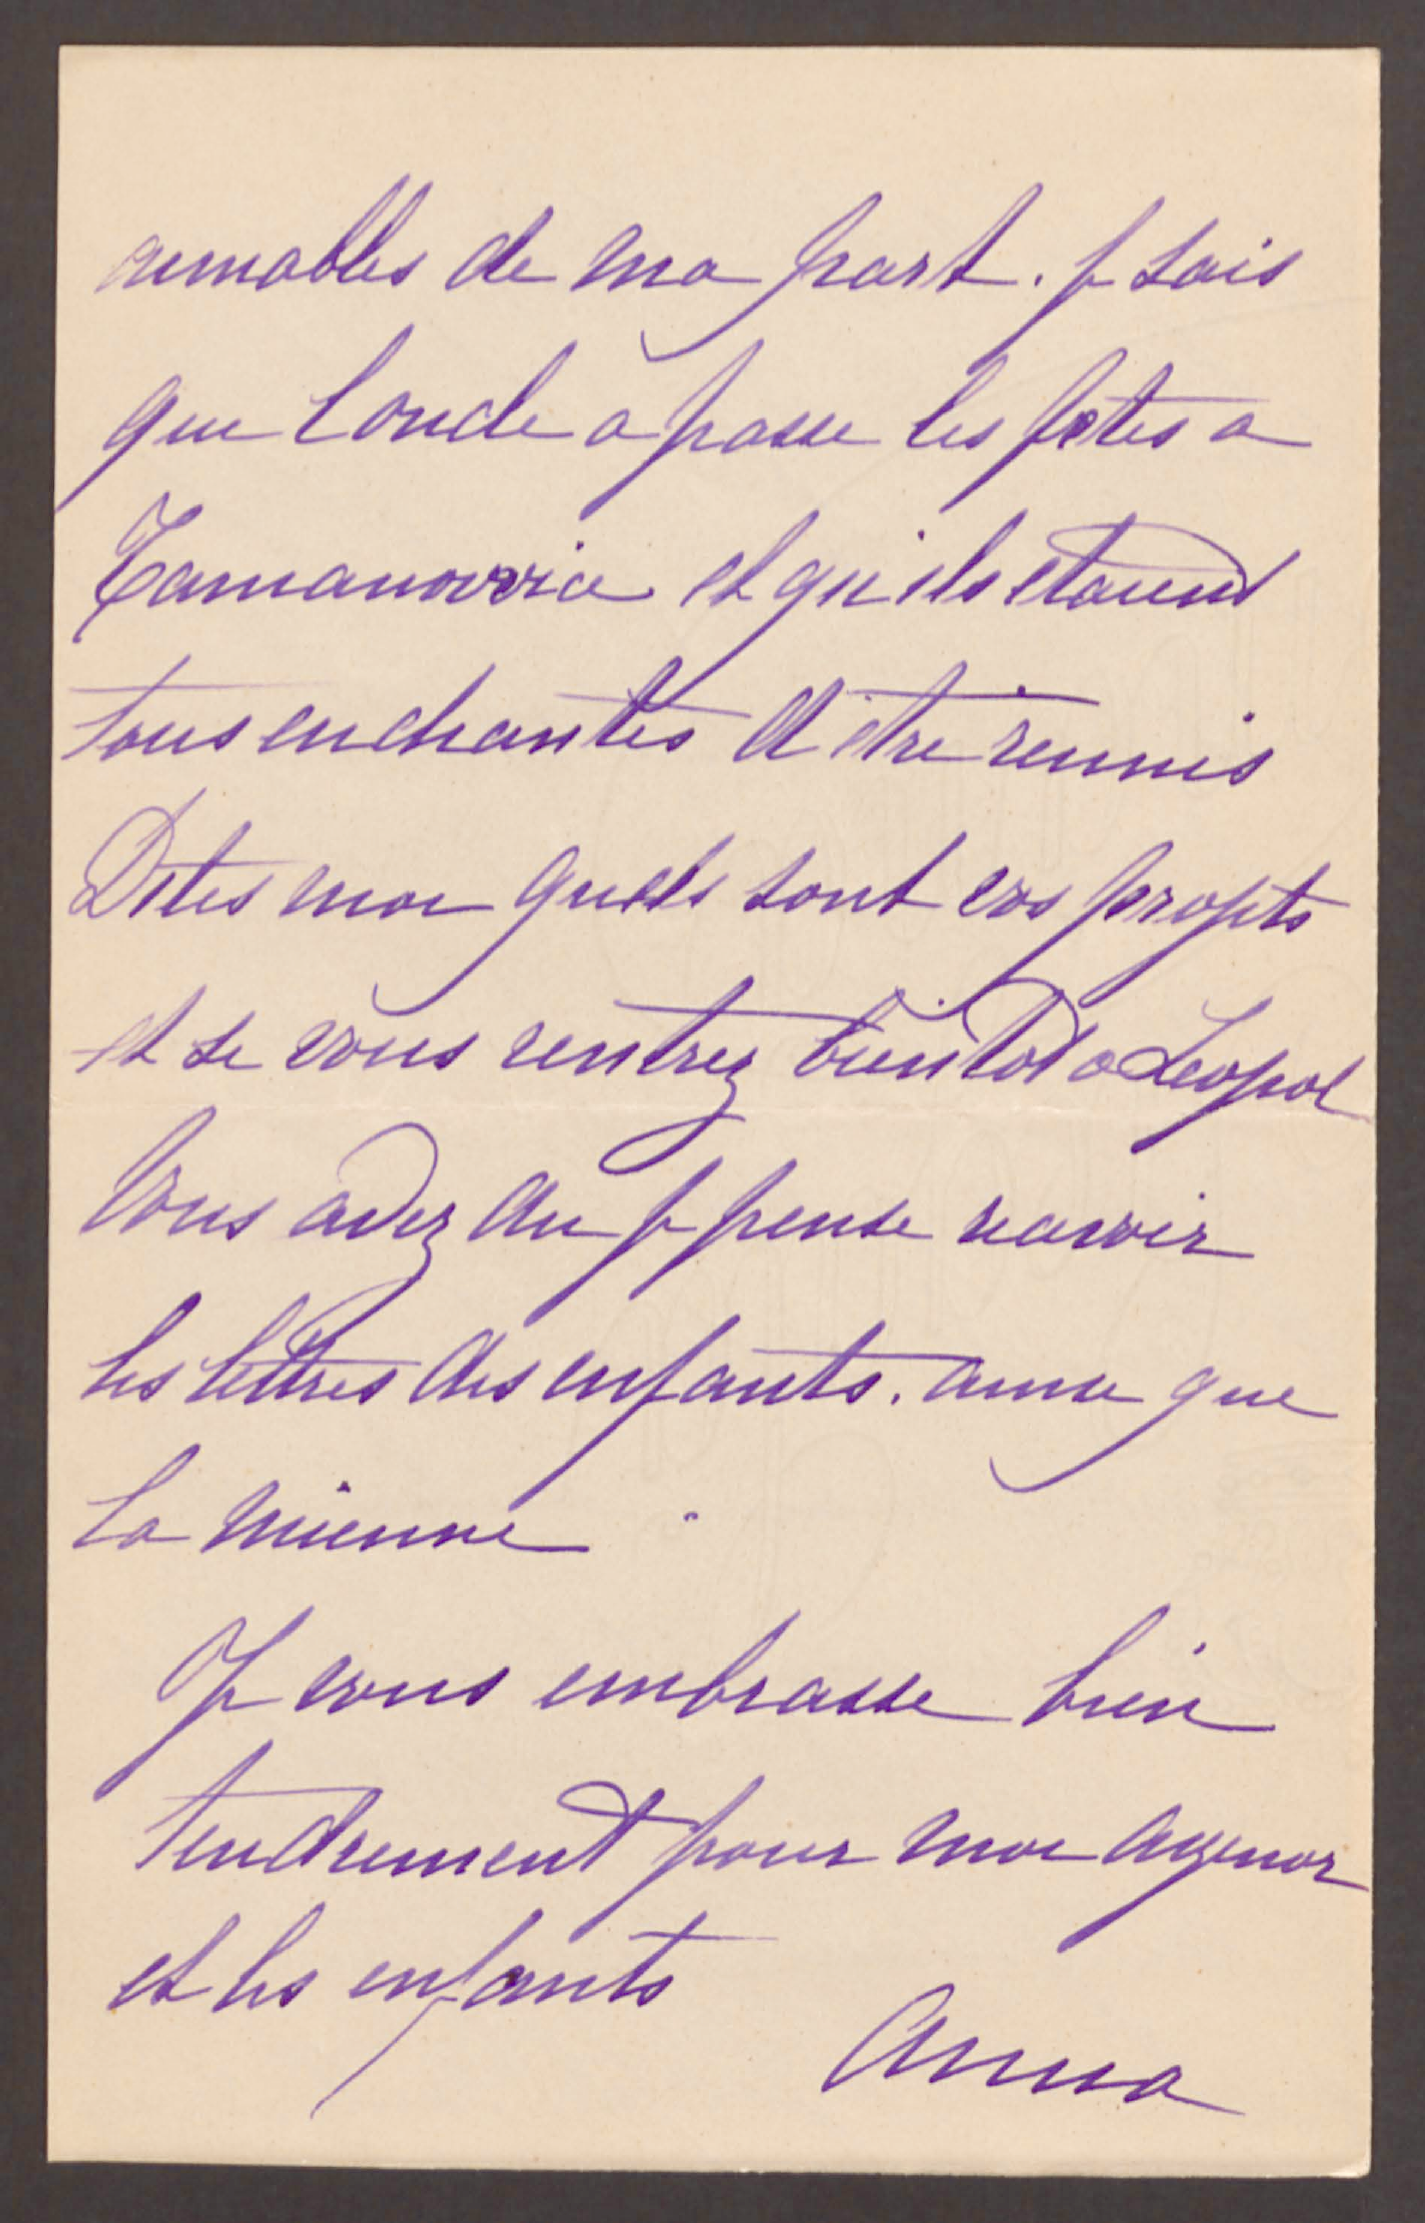 aimables de ma part. Je sais
que l'oncle a passe les fetes a
Tarnanowica et qu'ils etaient
tous enchantes d'être reunis
Dites moi quels sont vos projets
et si vous rentrez bientot a Leopol
Vous avez du je pense recevoir
les lettres des enfants. ainsi que
la mienne
Je vous embrasse bien
tendrement pour moi Agenor
et les enfants
Anna